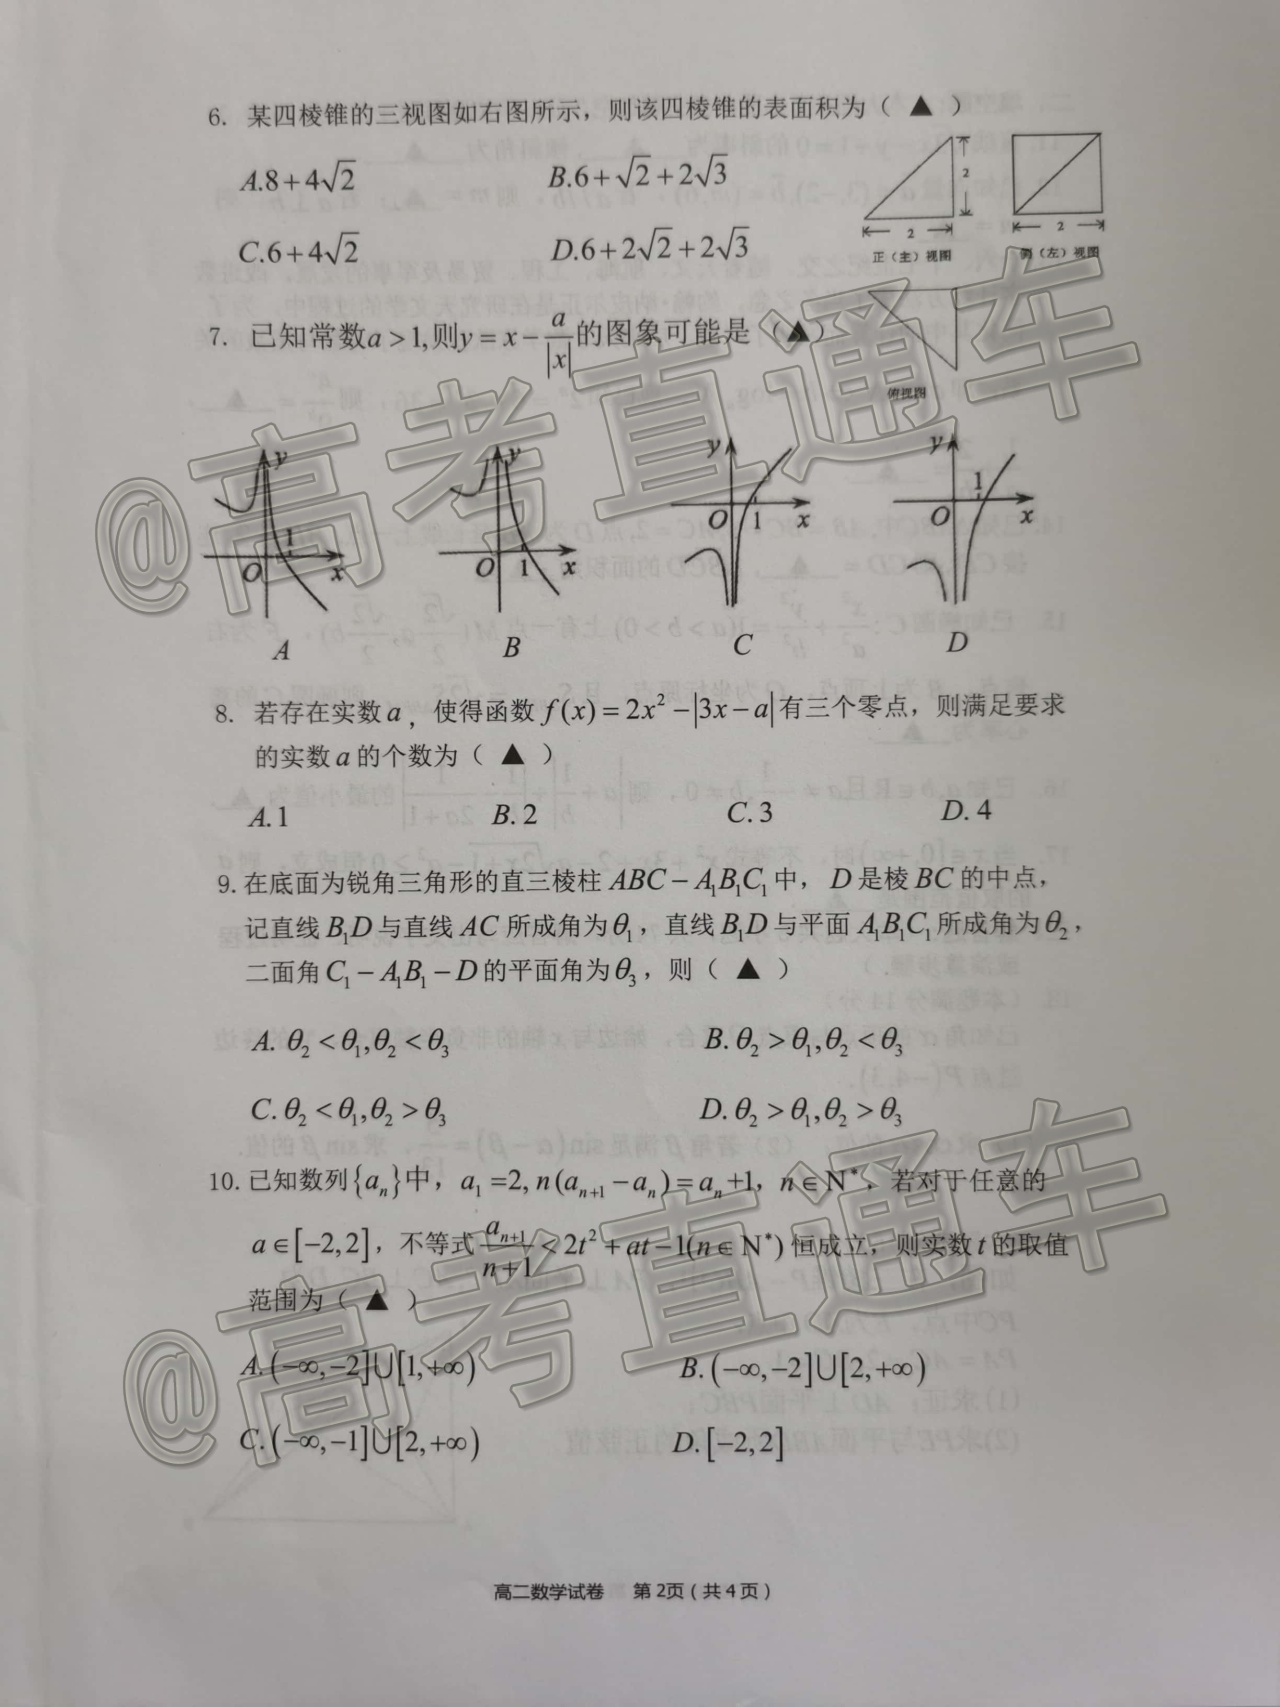 6. 某四棱锥的三视图如右图所示，则该四棱锥的表面积为（ ▲ ）
A.8+4√2 B.6+√2+2√3
C.6+4√2 D.6+2√2+2√3
2
2
正（主）视图
2
侧（左）视图
俯视图
7. 已知常数a>1,则y=x-a/|x|的图象可能是（▲）
y 1 O x
y O 1 x
y O 1 x
y 1 O x
A B C D
8. 若存在实数a，使得函数f(x)=2x²-|3x-a|有三个零点，则满足要求
的实数a的个数为（ ▲ ）
A.1 B.2 C.3 D.4
9.在底面为锐角三角形的直三棱柱ABC-A₁B₁C₁中，D是棱BC的中点，
记直线B₁D与直线AC所成角为θ₁，直线B₁D与平面A₁B₁C₁所成角为θ₂，
二面角C₁-A₁B₁-D的平面角为θ₃，则（ ▲ ）
A. θ₂<θ₁,θ₂<θ₃ B.θ₂>θ₁,θ₂<θ₃
C.θ₂<θ₁,θ₂>θ₃ D.θ₂>θ₁,θ₂>θ₃
10.已知数列{aₙ}中，a₁=2,n(aₙ₊₁-aₙ)=aₙ+1，n∈N*，若对于任意的
a∈[-2,2]，不等式aₙ₊₁/(n+1)<2t²+at-1(n∈N*)恒成立，则实数t的取值
范围为（ ▲ ）
A.(-∞,-2]∪[1,+∞) B.(-∞,-2]∪[2,+∞)
C.(-∞,-1]∪[2,+∞) D.[-2,2]
高二数学试卷 第2页（共4页）
@高考直通车
@高考直通车